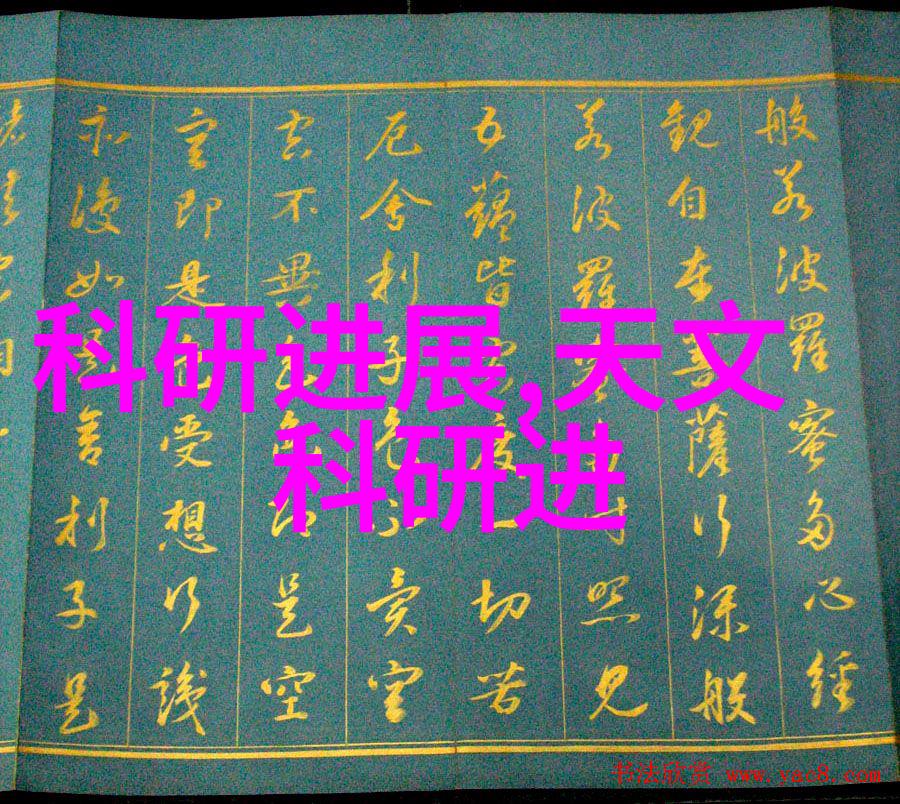 般若波羅蜜多心經
觀自在菩薩行深般
若波羅蜜多時照見
五蘊皆空度一切苦
厄舍利子色不異空
空不異色色即是空
空即是色受想行識
亦復如是舍利子是
科研进展,天文
科研进
书法欣赏 www.yac8.com